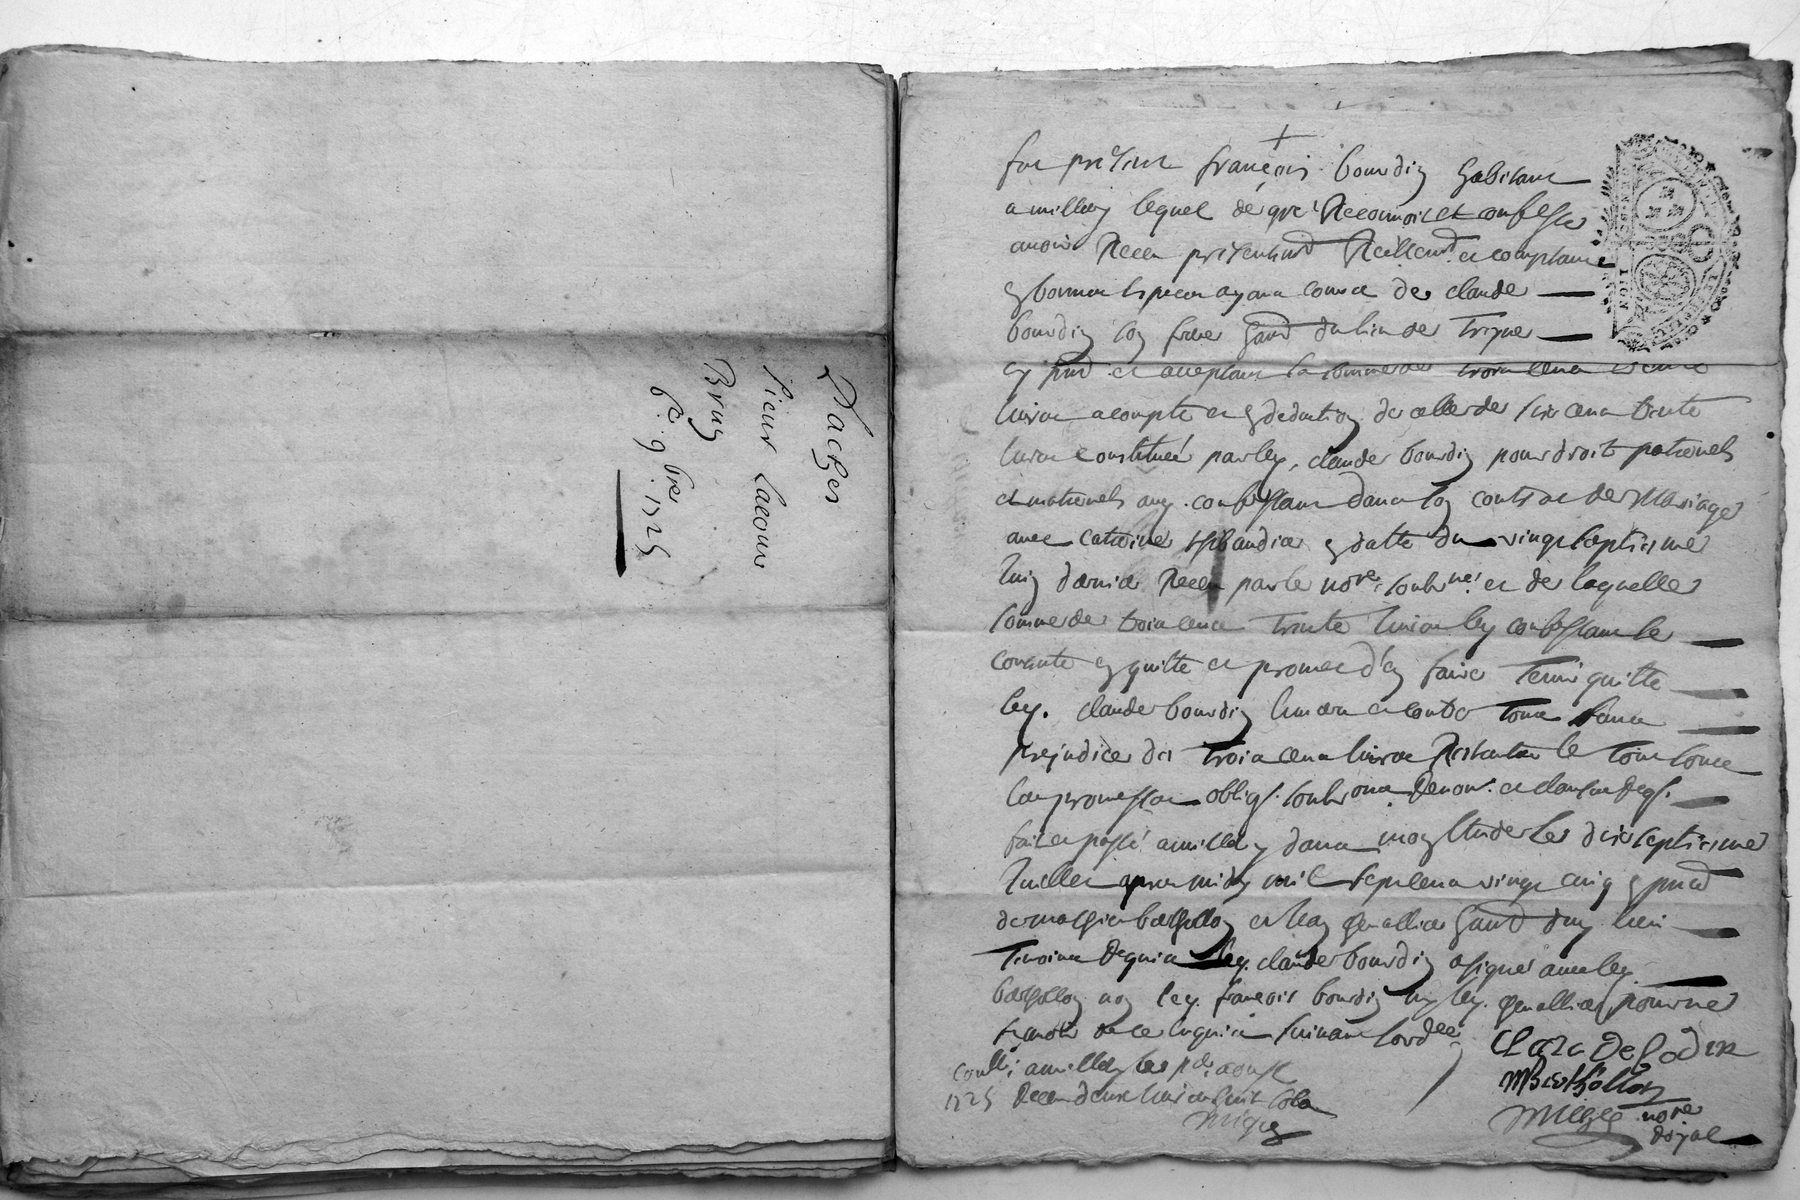 Dachzes
sieur lacour
Bruy
6e. 9bre 1725
fut present françois bourdin habitant
a millery lequel de gré Reconnoit et confesse
avoir Receu presentemt Reellemt et comptant
en bonnes especes ayant cource de claude
bourdin son frere habt du lieu de
cy pnt et acceptant la somme de trois cens trente
livres a compte et en deduction de celle de six cens trente
livres constituée par ley. claude bourdin pour droits paternels
et maternels auy. confessant dans son contrat de Mariage
avec caterine en datte du vingt septieme
juin dernier Receu par le nore. soubsne. et de laquelle
somme de trois cens trente livres ley confessant se
contente en quitte et promet d'en faire tenir quitte
ley. claude bourdin envers et contre tous sans
prejudice des trois cens livres Restantes le tout sous
les promesses oblig. soubsons Renon. et clauses Reqs.
fait et passé a millery dans mon estude le dix septieme
juillet apres midy mil sept cens vingt cinq en pnce
de mathieu berthollon et habt duy. lieu
temoins Requis ley. claude bourdin a signé avec ley.
berthollon non ley. françois bourdin ny ley. pour ne
scavoir de ce enquis suivant lordce
Conlle. a millery le pr. aoust
1725 Receu deux livres huit sols
Mberthollon
nore
Royal